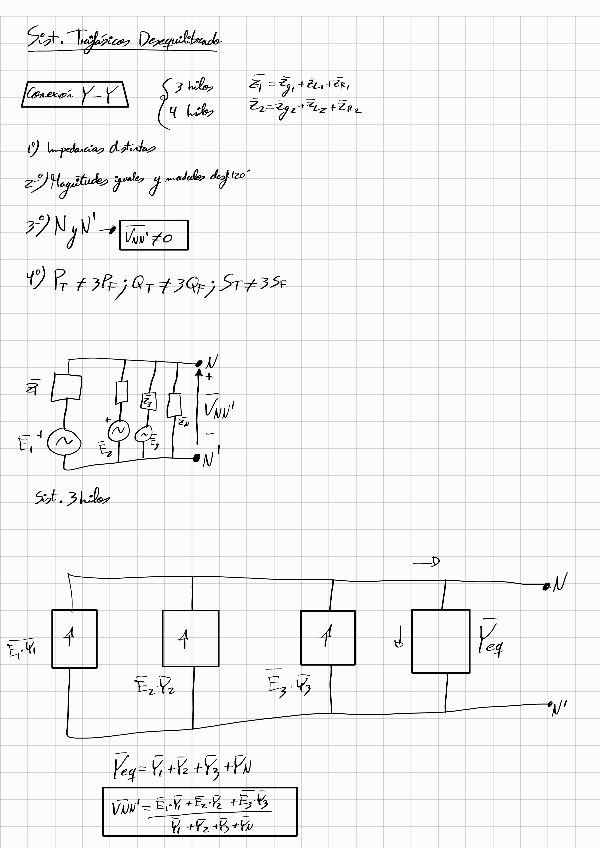 Sist. Trifásicos Desequilibrado
Conexión Y-Y
3 hilos
4 hilos
Z̄1 = Z̄g1 + Z̄L1 + Z̄R1
Z̄2 = Z̄g2 + Z̄L2 + Z̄R2
1º) Impedancias distintas
2º) Magnitudes iguales y modulos desf 120º
3º) N y N' → V̄NN' ≠ 0
4º) PT ≠ 3PF ; QT ≠ 3QF ; ST ≠ 3SF
N
+
Z̄1
Z̄3
Z̄N
V̄NN'
Ē1 +
+
Ē2
Ē3
-
N'
Sist. 3 hilos
N
Ē1·Ȳ1
Ȳeq
Ē2·Ȳ2
Ē3·Ȳ3
N'
Ȳeq = Ȳ1 + Ȳ2 + Ȳ3 + ȲN
V̄NN' = Ē1·Ȳ1 + Ē2·Ȳ2 + Ē3·Ȳ3
Ȳ1 + Ȳ2 + Ȳ3 + ȲN